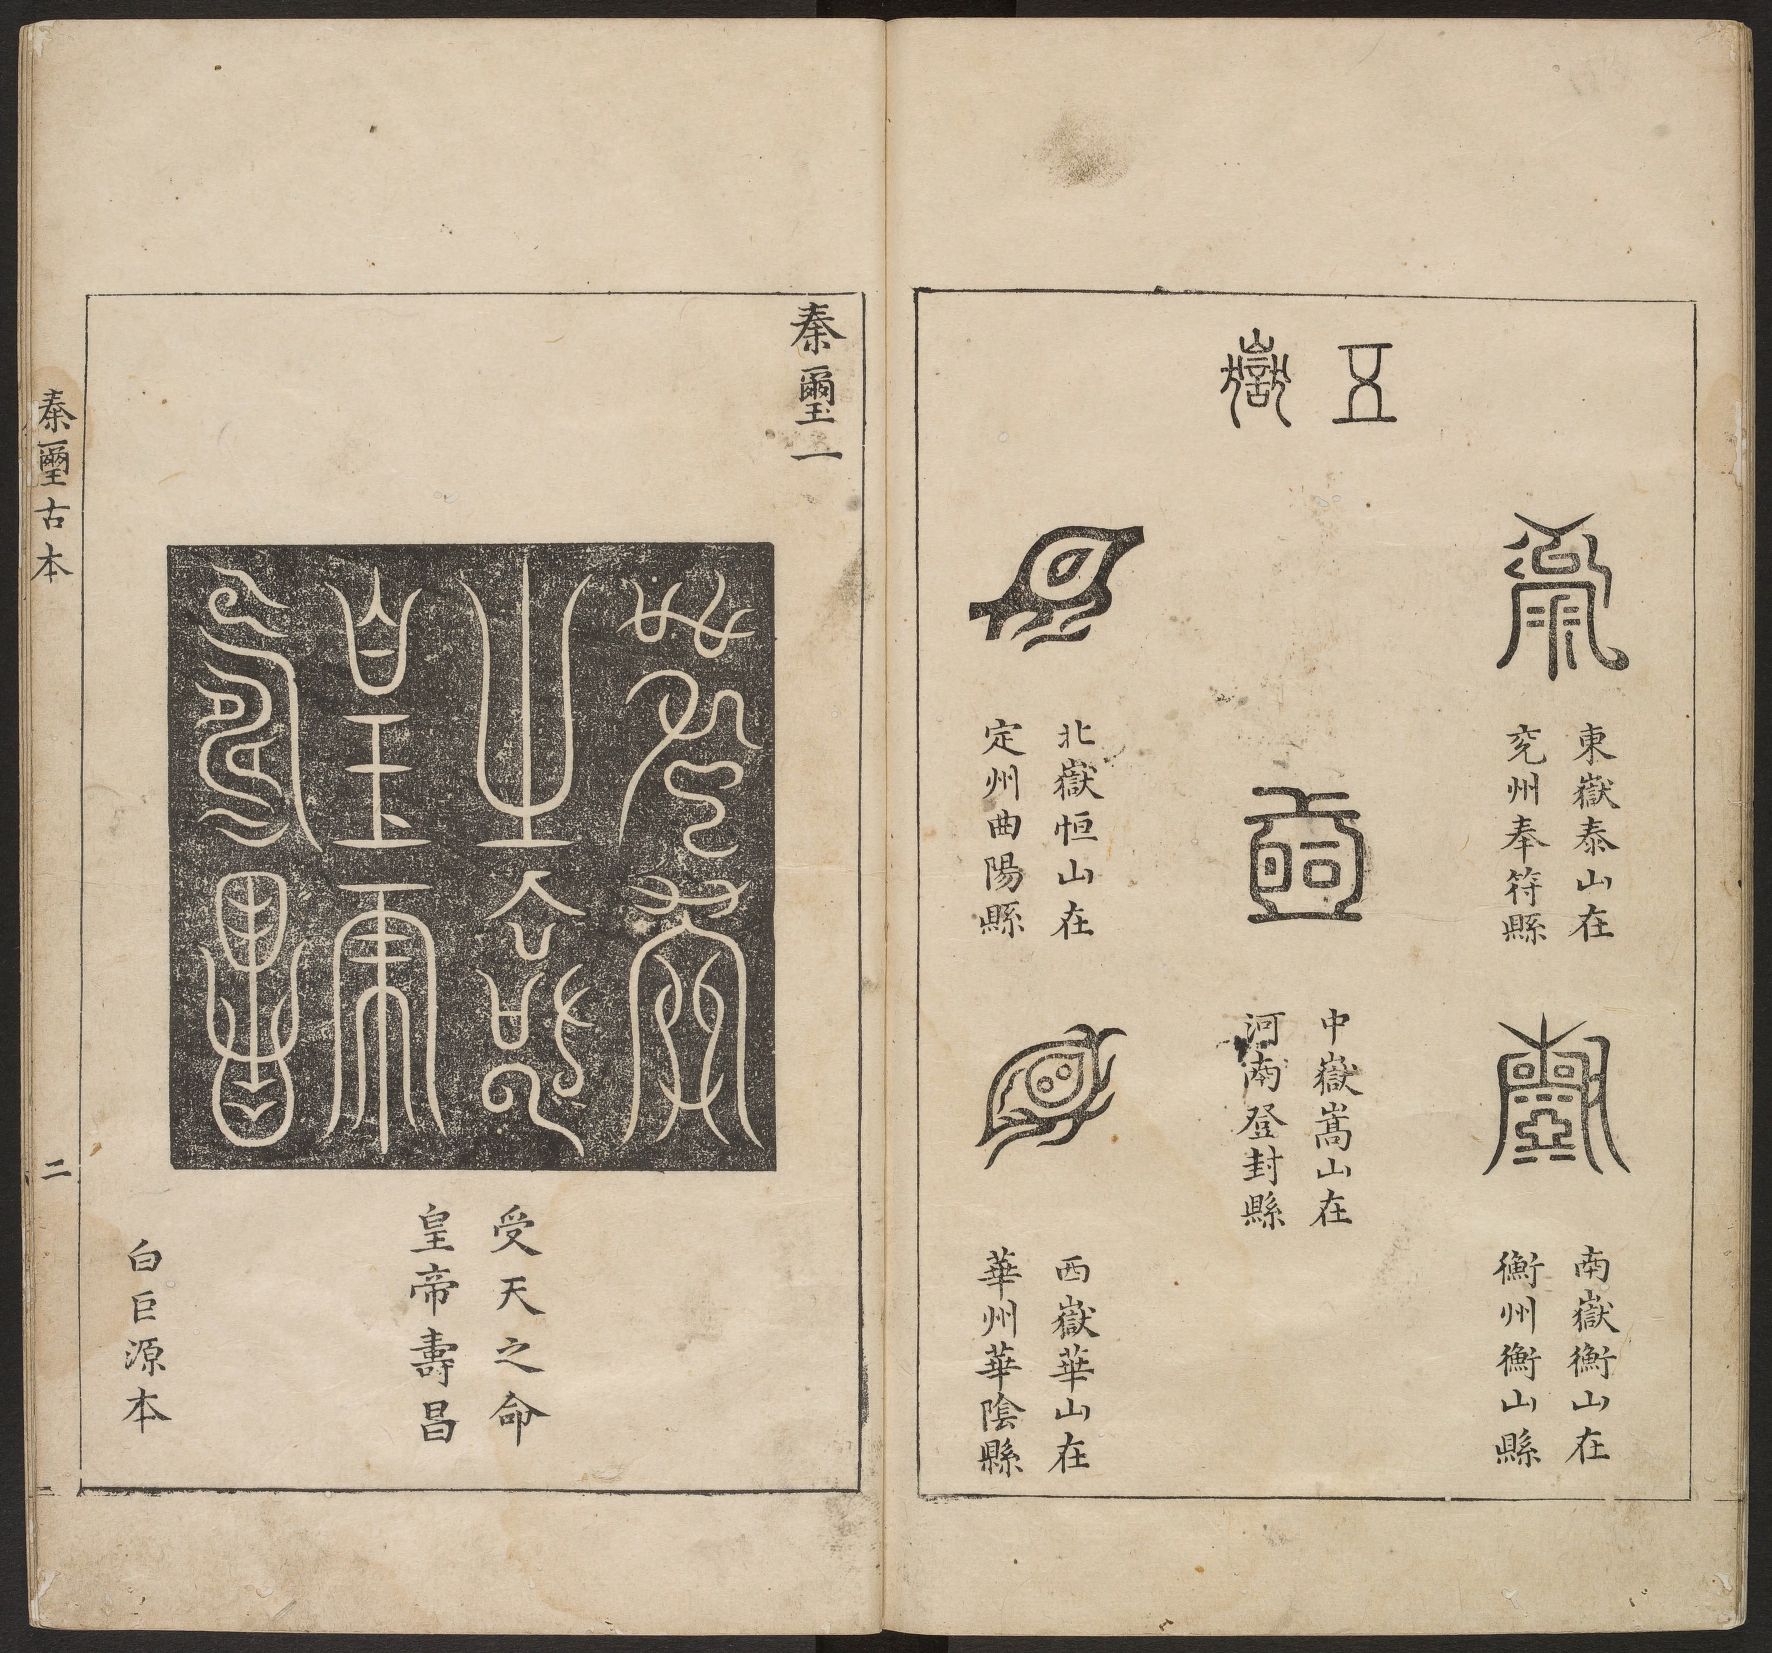 五嶽
東嶽泰山在
兖州奉符縣
南嶽衡山在
衡州衡山縣
中嶽嵩山在
河南登封縣
北嶽恒山在
定州曲陽縣
西嶽華山在
華州華陰縣
秦璽一
受天之命
皇帝壽昌
受天之命
皇帝壽昌
白巨源本
秦璽古本
二